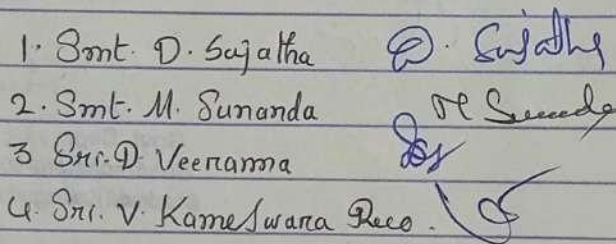 1. Smt. D. Sujatha D. Sujatha
2. Smt. M. Sunanda M Sunanda
3 Sri. D. Veeranna
4. Sri. V. Kameswara Rao.